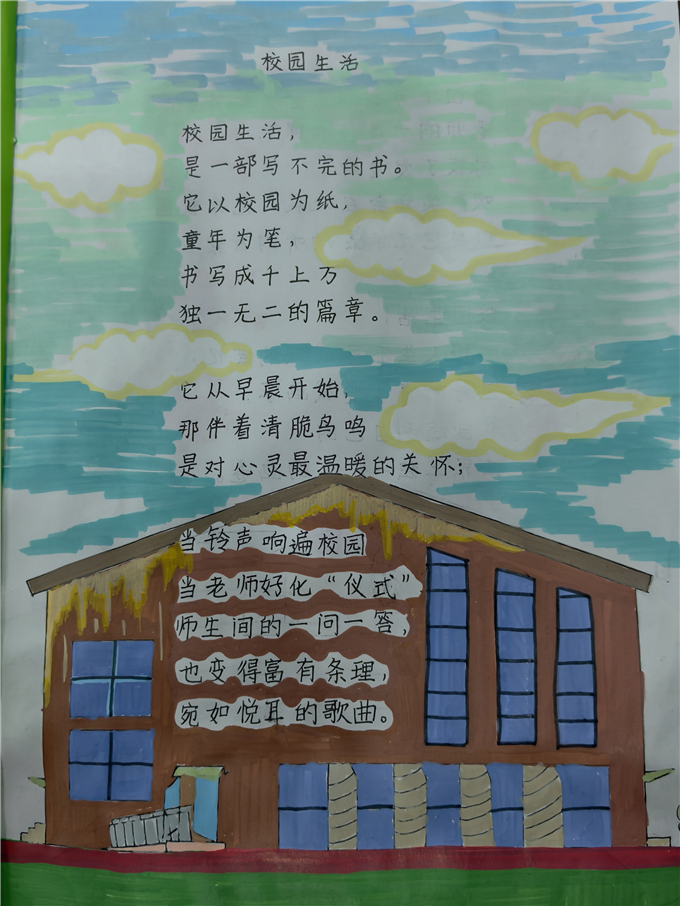 校园生活
校园生活，
是一部写不完的书。
它以校园为纸，
童年为笔，
书写成千上万
独一无二的篇章。
它从早晨开始，
那伴着清脆鸟鸣
是对心灵最温暖的关怀；
当铃声响遍校园
当老师好化“仪式”
师生间的一问一答，
也变得富有条理，
宛如悦耳的歌曲。